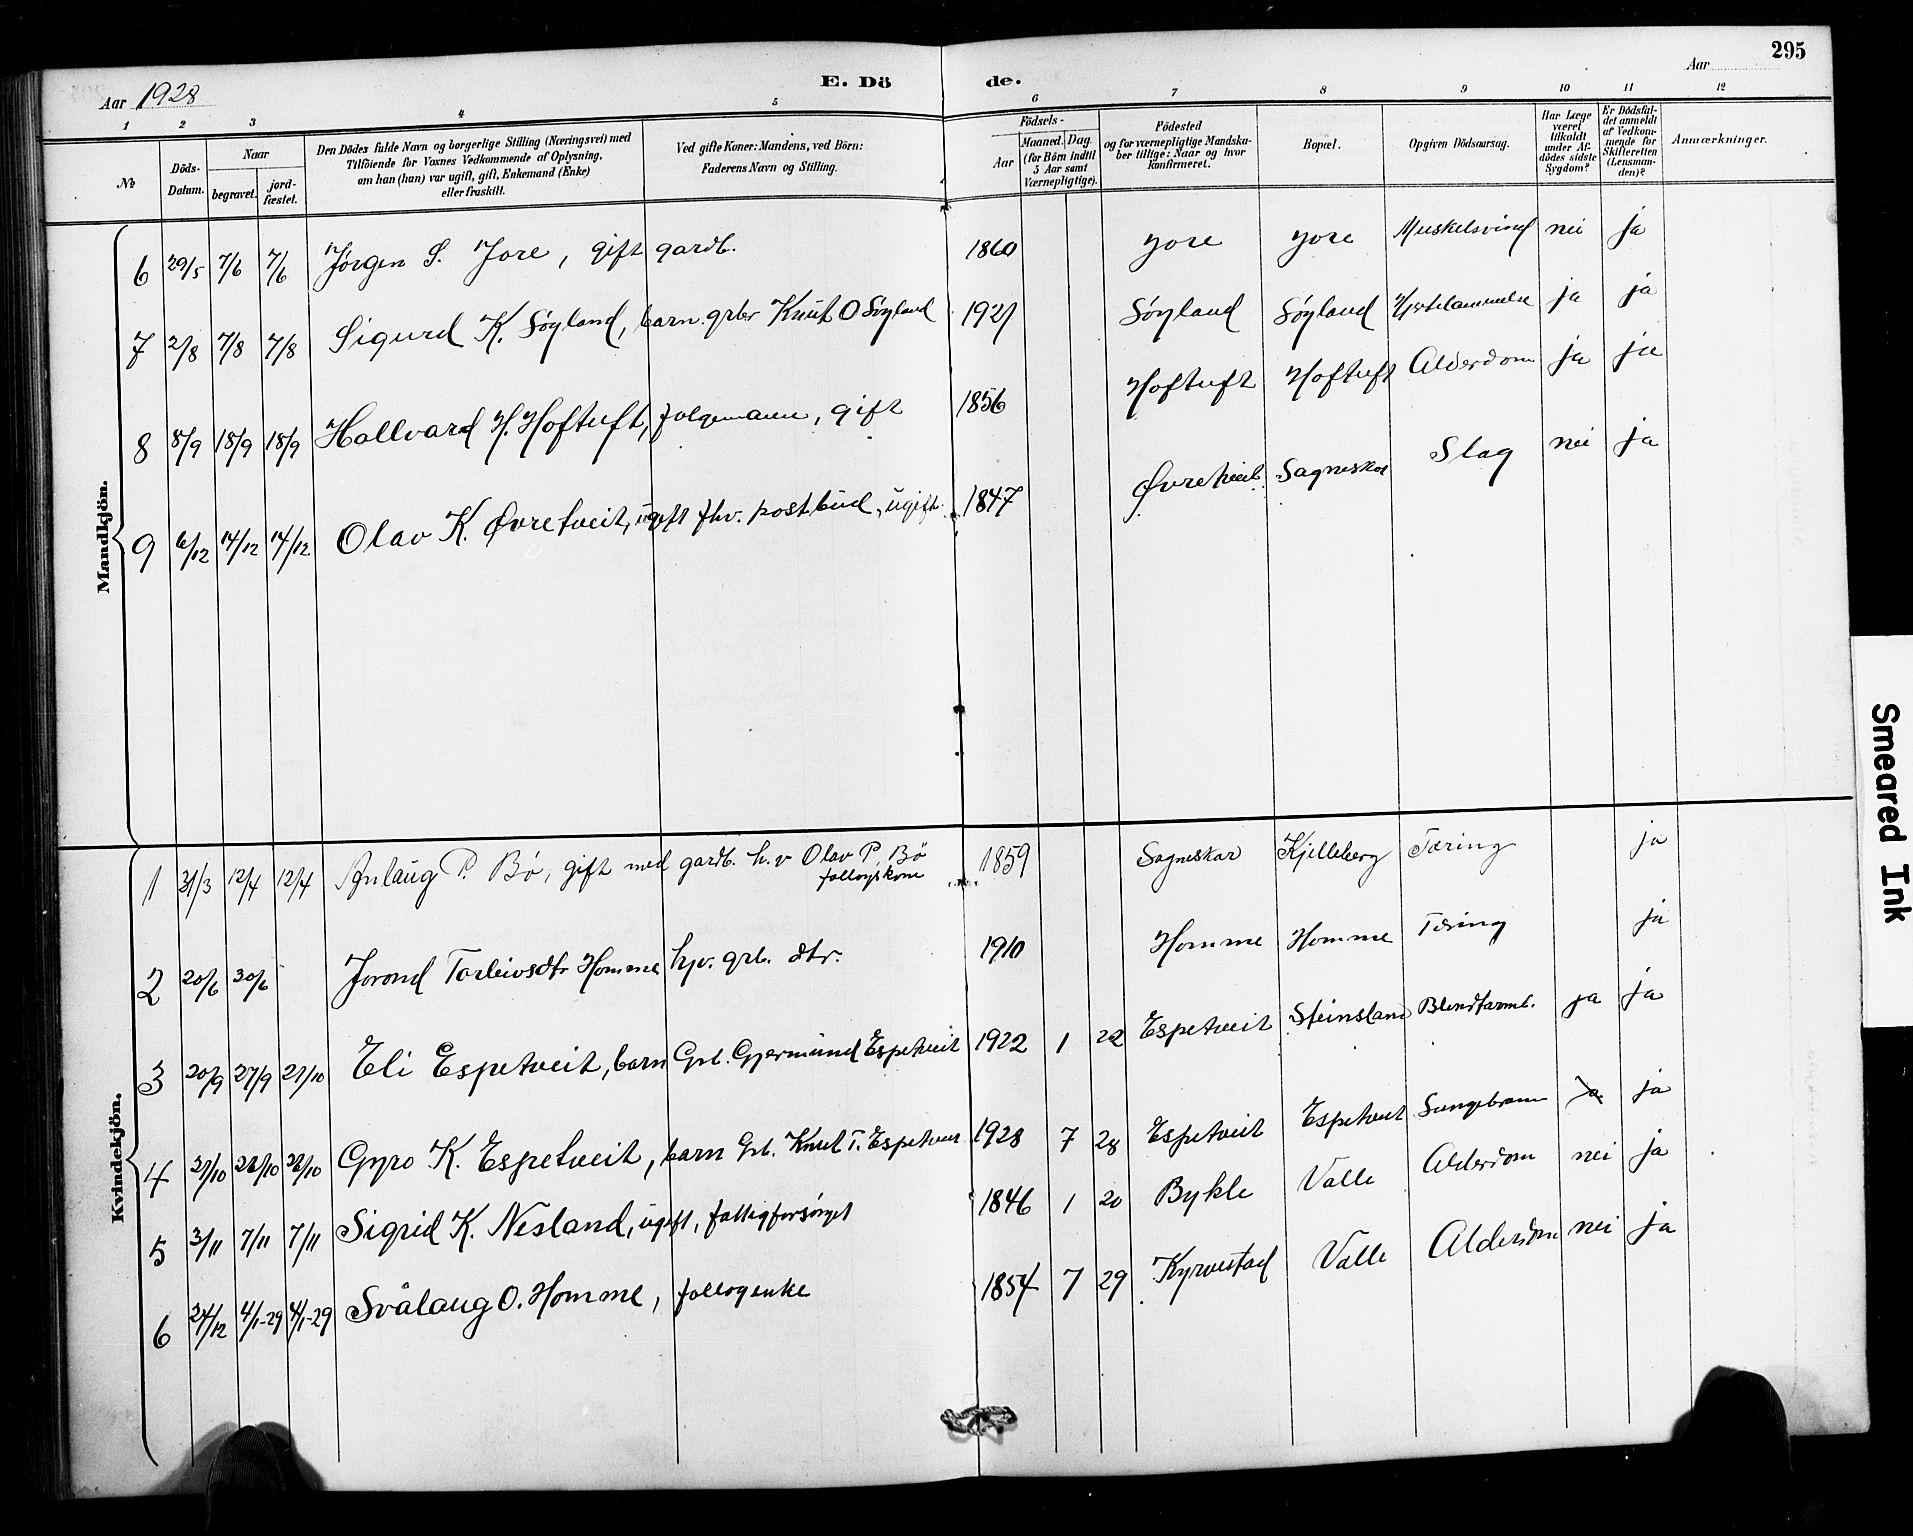 295
Aar 1928
E. Döde.
Aar
1 2 3 4 5 6 7 8 9 10 11 12
No
Döds-Datum.
Naar
begravet.
jordfæstet.
Den Dödes fulde Navn og borgerlige Stilling (Næringsvei) med
Tilföiende for Voxnes Vedkommende af Oplysning,
om han (hun) var ugift, gift, Enkemand (Enke)
eller fraskilt.
Ved gifte Koner: Mandens, ved Börn:
Faderens Navn og Stilling.
Födsels-
Aar
Maaned. Dag.
(for Börn indtil
5 Aar samt
Værnepligtige).
Födested
og for værnepligtige Mandskaber tillige: Naar og hvor
konfirmeret.
Bopæl.
Opgiven Dödsaarsag.
Har Læge
været
tilkaldt
under Afdödes sidste
Sygdom?
Er Dödsfaldet anmeldt
af Vedkommende for
Skifteretten
(Lensmanden)?
Anmærkninger.
Mandkjön.
6 29/5 7/6 7/6 Jørgen S. Jore, gift gardb. 1860 Jore Jore Muskelsvind nei ja
7 2/8 7/8 7/8 Sigurd K. Søyland, barn. grbr Knut O Søyland 1921 Søyland Søyland Hjertelammelse ja ja
8 8/9 18/9 18/9 Hallvard H. Hoftuft, folgemann, gift 1856 Hoftuft Hoftuft Alderdom ja ja
9 6/12 14/12 14/12 Olav K. Øvretveit, ugift fhv. postbud, ugift. 1847 Øvretveit Sagneskar Slag nei ja
Kvindekjön.
1 31/3 12/4 12/4 Anlaug P. Bø, gift med gardb. h. v Olav P. Bø
1859 Sagneskar Kjelleberg Tæring ja
2 20/6 30/6 Jorond Torleivsdtr Homme hjv. grb. dtr. 1910 Homme Homme Tæring ja
3 20/9 27/9 21/10 Eli Espetveit, barn Grb. Gjermund Espetveit 1922 1 22 Espetveit Steinsland Blindtarmb. ja ja
4 21/10 28/10 28/10 Gyro K. Espetveit, barn Grb. Knut T. Espetveit 1928 7 28 Espetveit Espetveit ja ja
5 3/11 7/11 7/11 Sigrid K. Nesland, ugift, fattigforsørget 1846 1 20 Bykle Valle Alderdom nei ja
6 24/12 4/1-29 4/1-29 Svålaug O. Homme, follogenke 1854 7 29 Kyrvestad Valle Alderdom nei ja
Smeared Ink